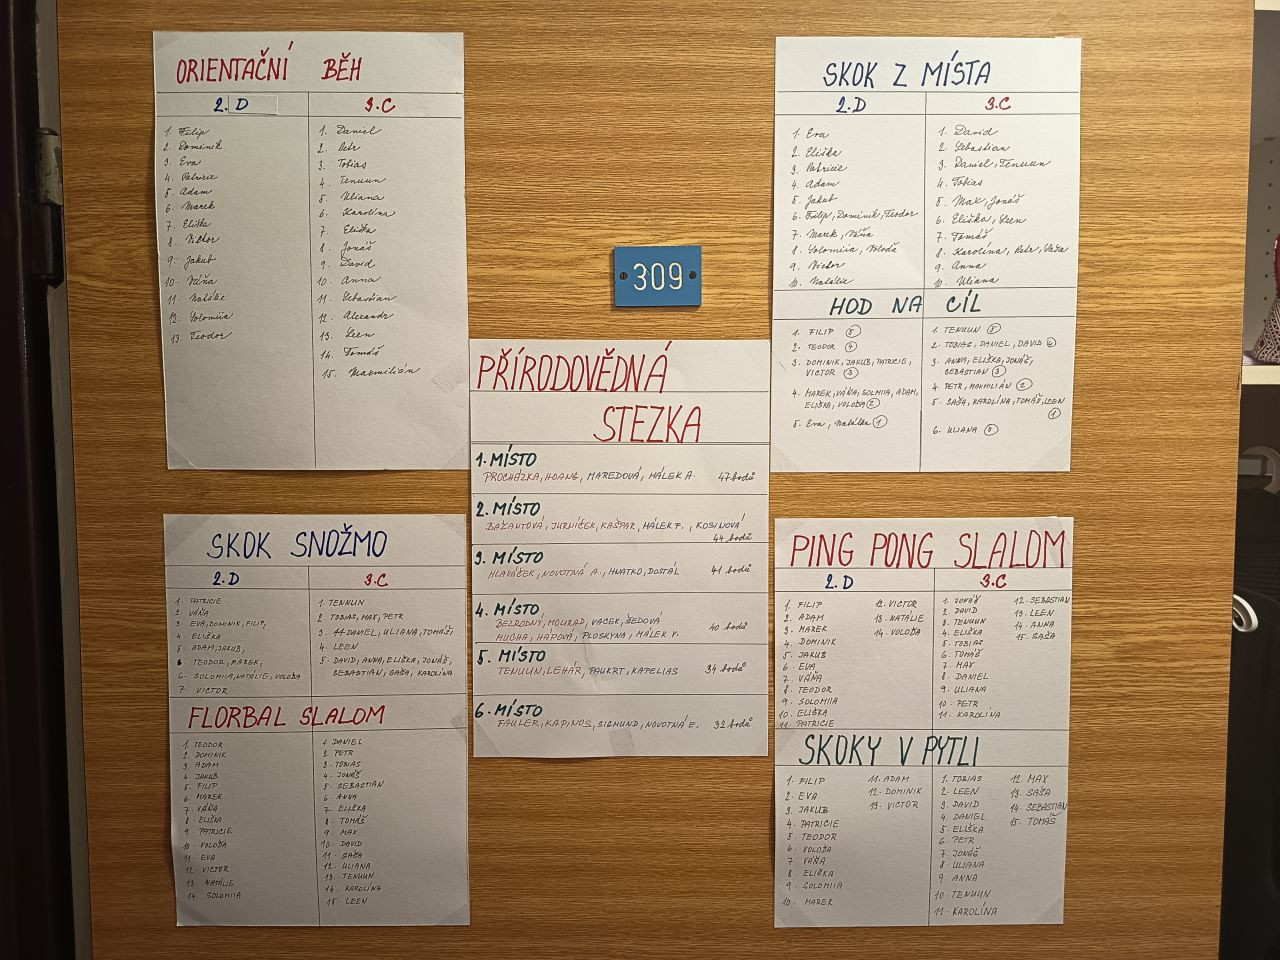 ORIENTAČNÍ BĚH
2.D
1. Filip
2. Dominik
3. Eva
4. Patricie
5. Adam
6. Marek
7. Eliška
8. Viktor
9. Jakub
10. Váňa
11. Natálie
12. Solomiia
13. Teodor
3.C
1. Daniel
2. Petr
3. Tobias
4. Tenuun
5. Uliana
6. Karolína
7. Eliška
8. Jonáš
9. David
10. Anna
11. Sebastian
12. Alexandr
13. Leen
14. Tomáš
15. Maxmilián
SKOK Z MÍSTA
2.D
1. Eva
2. Eliška
3. Patricie
4. Adam
5. Jakub
6. Filip, Dominik, Teodor
7. Marek, Váňa
8. Solomiia, Voloďa
9. Victor
10. Natálie
3.C
1. David
2. Sebastian
3. Daniel, Tenuun
4. Tobias
5. Max, Jonáš
6. Eliška, Leen
7. Tomáš
8. Karolína, Petr, Saša
9. Anna
10. Uliana
HOD NA CÍL
1. FILIP 5
2. TEODOR 4
3. DOMINIK, JAKUB, PATRICIE,
VICTOR 3
4. MAREK, VÁŇA, SOLMIIA, ADAM,
ELIŠKA, VOLOĎA 2
5. Eva, Natálka 1
1. TENUUN 5
2. TOBIAS, DANIEL, DAVID 4
3. ANNA, ELIŠKA, JONÁŠ,
SEBASTIAN 3
4. PETR, MAXMILIÁN 2
5. SAŠA, KAROLÍNA, TOMÁŠ, LEEN
1
6. ULIANA 0
309
PŘÍRODOVĚDNÁ
STEZKA
1. MÍSTO
PROCHÁZKA, HOANG, MAREDOVÁ, MÁLEK A. 47 bodů
2. MÍSTO
BAŽANTOVÁ, JURNÍČEK, KAŠPAR, MÁLEK F., KOSINOVÁ
44 bodů
3. MÍSTO
HLAVÁČEK, NOVOTNÁ A., HNATKO, DOSTÁL 41 bodů
4. MÍSTO
BEZRODNY, MOURAD, VACEK, ŠEDOVÁ
MUCHA, HÁPOVÁ, PLOSKYNA, MÁLEK V. 40 bodů
5. MÍSTO
TENUUN, LEHÁR, PAUKRT, KAPELIAS 34 bodů
6. MÍSTO
FAULER, KAPINOS, SIGMUND, NOVOTNÁ E. 32 bodů
SKOK SNOŽMO
2.D
1. PATRICIE
2. VÁŇA
3. EVA, DOMINIK, FILIP,
4. ELIŠKA
5. ADAM, JAKUB,
TEODOR, MAREK,
6. SOLOMIIA, NATÁLIE, VOLOĎA
7. VICTOR
3.C
1. TENNUN
2. TOBIAS, MAX, PETR
3. DANIEL, ULIANA, TOMÁŠ
4. LEEN
5. DAVID, ANNA, ELIŠKA, JONÁŠ,
SEBASTIAN, SAŠA, KAROLÍNA
FLORBAL SLALOM
1. TEODOR
2. DOMINIK
3. ADAM
4. JAKUB
5. FILIP
6. MAREK
7. VÁŇA
8. ELIŠKA
9. PATRICIE
10. VOLOĎA
11. EVA
12. VICTOR
13. NATÁLIE
14. SOLOMIIA
1. DANIEL
2. PETR
3. TOBIAS
4. JONÁŠ
5. SEBASTIAN
6. ANNA
7. ELIŠKA
8. TOMÁŠ
9. MAX
10. DAVID
11. SAŠA
12. ULIANA
13. TENUUN
14. KAROLÍNA
15. LEEN
PING PONG SLALOM
2.D
1. FILIP
2. ADAM
3. MAREK
4. DOMINIK
5. JAKUB
6. EVA
7. VÁŇA
8. TEODOR
9. SOLOMIIA
10. ELIŠKA
11. PATRICIE
12. VICTOR
13. NATÁLIE
14. VOLOĎA
3.C
1. JONÁŠ
2. DAVID
3. TENUUN
4. ELIŠKA
5. TOBIAS
6. TOMÁŠ
7. MAX
8. DANIEL
9. ULIANA
10. PETR
11. KAROLÍNA
12. SEBASTIAN
13. LEEN
14. ANNA
15. SAŠA
SKOKY V PYTLI
1. FILIP
2. EVA
3. JAKUB
4. PATRICIE
5. TEODOR
6. VOLOĎA
7. VÁŇA
8. ELIŠKA
9. SOLOMIIA
10. MAREK
11. ADAM
12. DOMINIK
13. VICTOR
1. TOBIAS
2. LEEN
3. DAVID
4. DANIEL
5. ELIŠKA
6. PETR
7. JONÁŠ
8. ULIANA
9. ANNA
10. TENUUN
11. KAROLÍNA
12. MAX
13. SAŠA
14. SEBASTIAN
15. TOMÁŠ